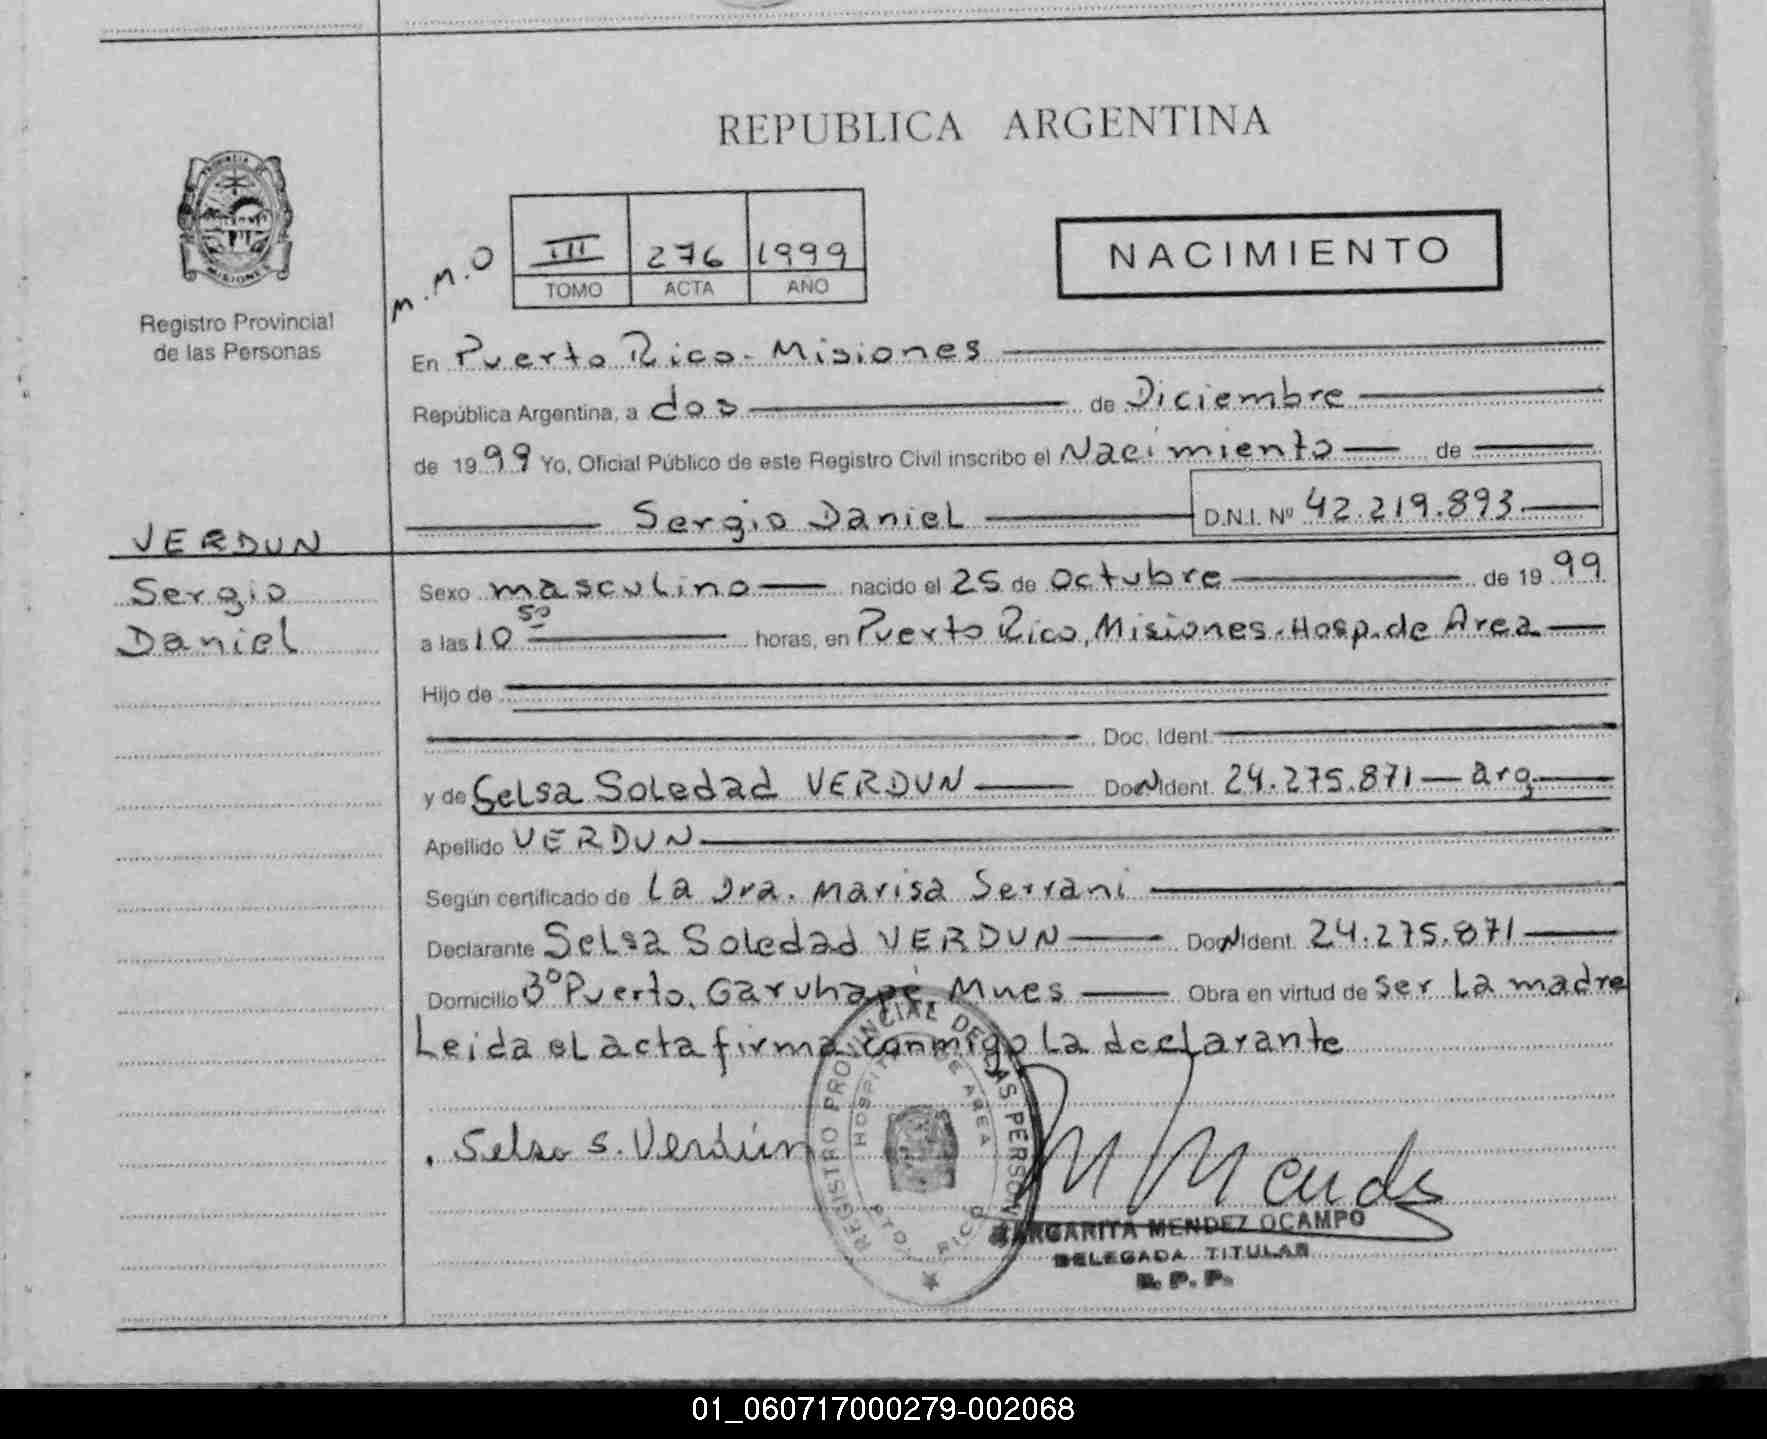 REPUBLICA ARGENTINA
PROVINCIA DE
MISIONES
Registro Provincial
de las Personas
M.M.O
III 276 1999
TOMO ACTA AÑO
NACIMIENTO
En Puerto Rico - Misiones
República Argentina, a dos de Diciembre
de 1999 Yo, Oficial Público de este Registro Civil inscribo el Nacimiento de
Sergio Daniel D.N.I. Nº 42.219.893
VERDUN
Sergio
Daniel
Sexo masculino nacido el 25 de Octubre de 1999
a las 10 50 horas, en Puerto Rico, Misiones. Hosp. de Area
Hijo de
Doc. Ident.
y de Selsa Soledad VERDUN Doc. Ident. 24.275.871 - arg.
Apellido VERDUN
Según certificado de La Dra. Marisa Serrani
Declarante Selsa Soledad VERDUN Doc. Ident. 24.275.871
Domicilio Bº Puerto, Garuhapé, Mnes Obra en virtud de ser La madre
Leida el acta firma conmigo La declarante
Selsa S. Verdún
REGISTRO PROVINCIAL DE LAS PERSONAS
HOSPITAL DE AREA
PTO RICO
M Mendez
MARGARITA MENDEZ OCAMPO
DELEGADA TITULAR
R. P. P.
01_060717000279-002068